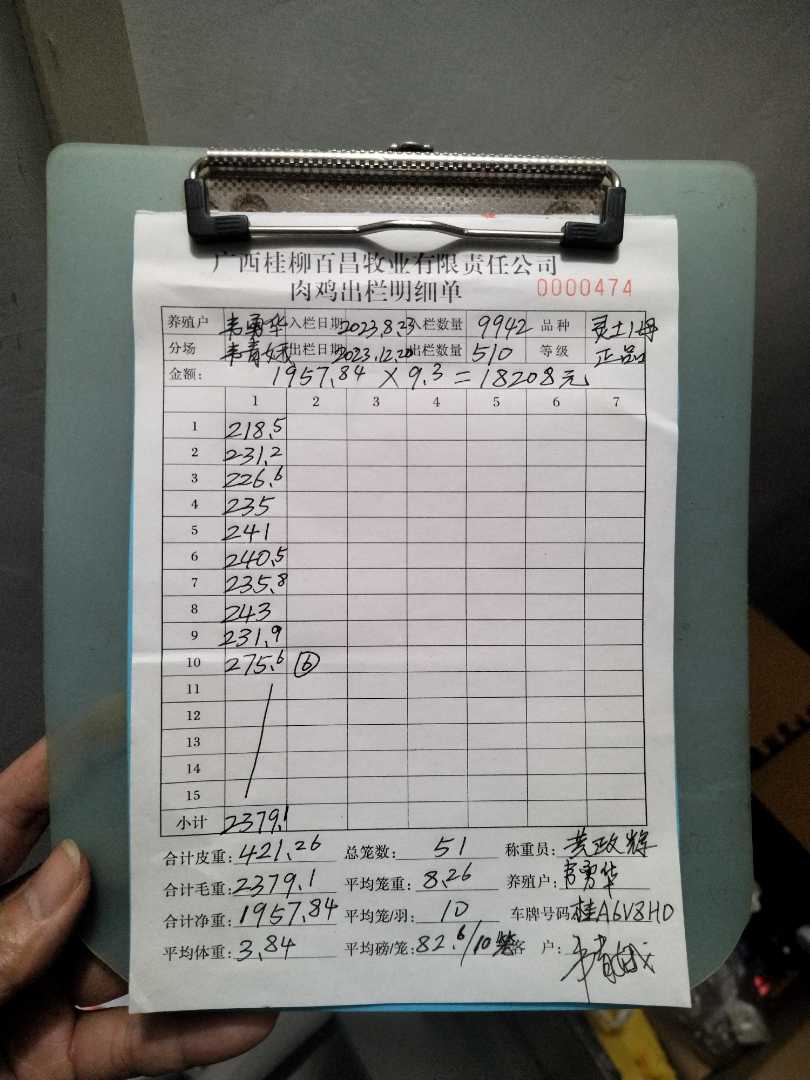 广西桂柳百昌牧业有限责任公司
肉鸡出栏明细单 0000474
养殖户 韦勇华 入栏日期 2023.8.23 入栏数量 9942 品种 灵土1号
分场 韦青娥 出栏日期 2023.12.20 出栏数量 510 等级 正品
金额: 1957.84 × 9.3 = 18208元
1 2 3 4 5 6 7
1 218.5
2 231.2
3 226.6
4 235
5 241
6 240.5
7 235.8
8 243
9 231.9
10 275.6 ⑥
11
12
13
14
15
小计 2379.1
合计皮重: 421.26 总笼数: 51 称重员: 黄政辉
合计毛重: 2379.1 平均笼重: 8.26 养殖户: 韦勇华
合计净重: 1957.84 平均笼/羽: 10 车牌号码 桂A6V8H0
平均体重: 3.84 平均磅/笼: 82.6/10 客 户: 韦青娥